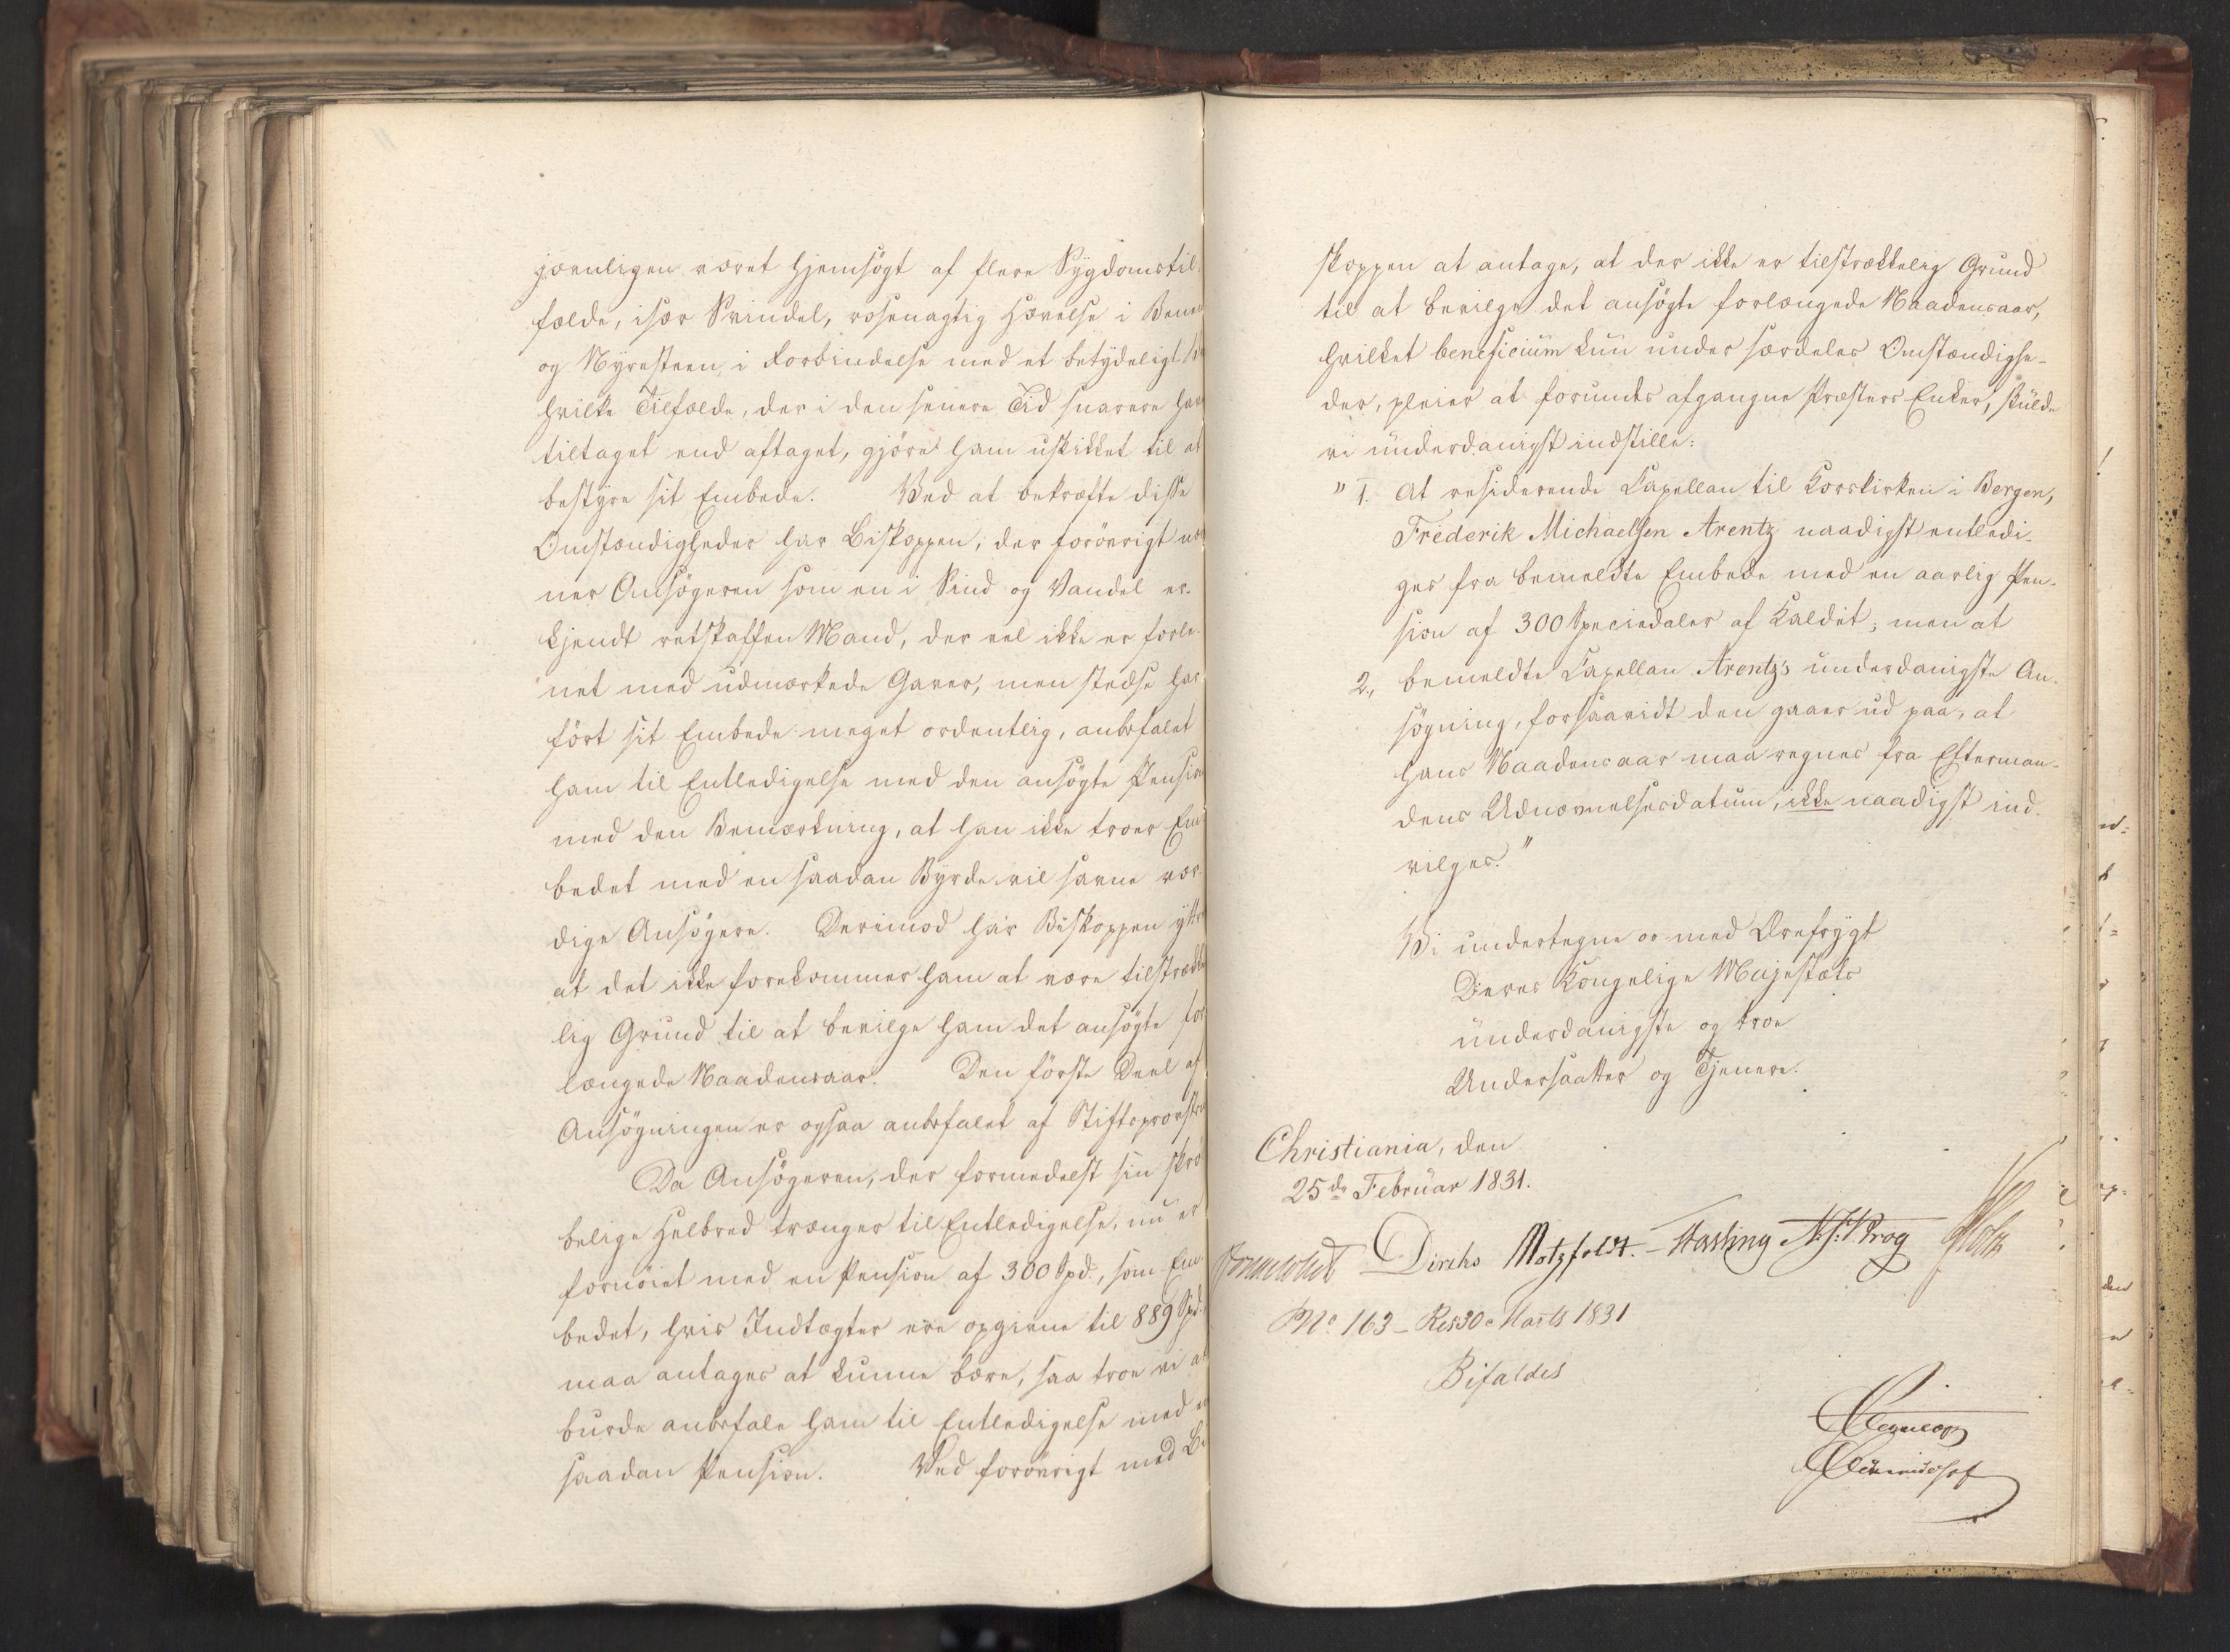 jævnligen været hjemsögt af flere Sygdomstil-
fælde, især Svindel, rosenagtig Hævelse i Benene
og Nyresteen, i Forbindelse med et betydeligt
hvilke Tilfælde, der i den senere Tid snarere have
tiltaget end aftaget, gjöre ham uskikket til at
bestyre sit Embede. Ved at bekræfte disse
Omstændigheder har Biskoppen, der forövrigt
ner Ansögeren som en i Sind og Vandel er-
kjendt retskaffen Mand, der vel ikke er forle-
net med udmærkede Gaver, men stedse har
fört sit Embede meget ordentlig, anbefalet
ham til Entledigelse med den ansögte Pension
med den Bemærkning, at han ikke troer Em-
bedet med en saadan Byrde vil savne vær-
dige Ansögere. Derimod har Biskoppen yttret
at det ikke forekommer ham at være tilstrække
lig Grund til at bevilge ham det ansögte for-
længede Naadensaar. Den förste Deel af
Ansögningen er ogsaa anbefalet af Stiftsprovsten
Da Ansögeren, der formedelst sin skrö-
belige Helbred trænger til Entledigelse, nu er
fornöiet med en Pension af 300 Spd., som Em-
bedet, hvis Indtægter ere opgivne til 889 Spd.,
maa antages at kunne bære, saa troe vi at
burde anbefale ham til Entledigelse med en
saadan Pension. Ved forövrigt med Bi-
skoppen at antage, at der ikke er tilstrækkelig Grund
til at bevilge det ansögte forlængede Naadensaar,
hvilket beneficium kun under særdeles Omstændighe-
der, pleier at forundes afgangne Præsters Enker, skulde
vi underdanigst indstille:
" 1. At residerende Capellan til Korskirken i Bergen,
Frederik Michaelsen Arentz naadigst entledi-
ges fra bemeldte Embede med en aarlig Pen-
sion af 300 Speciedaler af Kaldet; men at
2., bemeldte Capellan Arentz's underdanigste An-
sögning, forsaavidt den gaaer ud paa, at
hans Naadensaar maa regnes fra Efterman-
dens Udnævnelsesdatum, ikke naadigst ind-
vilges."
Vi undertegne os med Ærefrygt
Deres Kongelige Majestæts
underdanigste og troe
Undersaatter og Tjenere.
Christiania, den
25de Februar 1831.
Diriks Motzfeldt. Hasting N. J. Krog Holst
No. 163 - Res 30 Marts 1831
Bifaldes